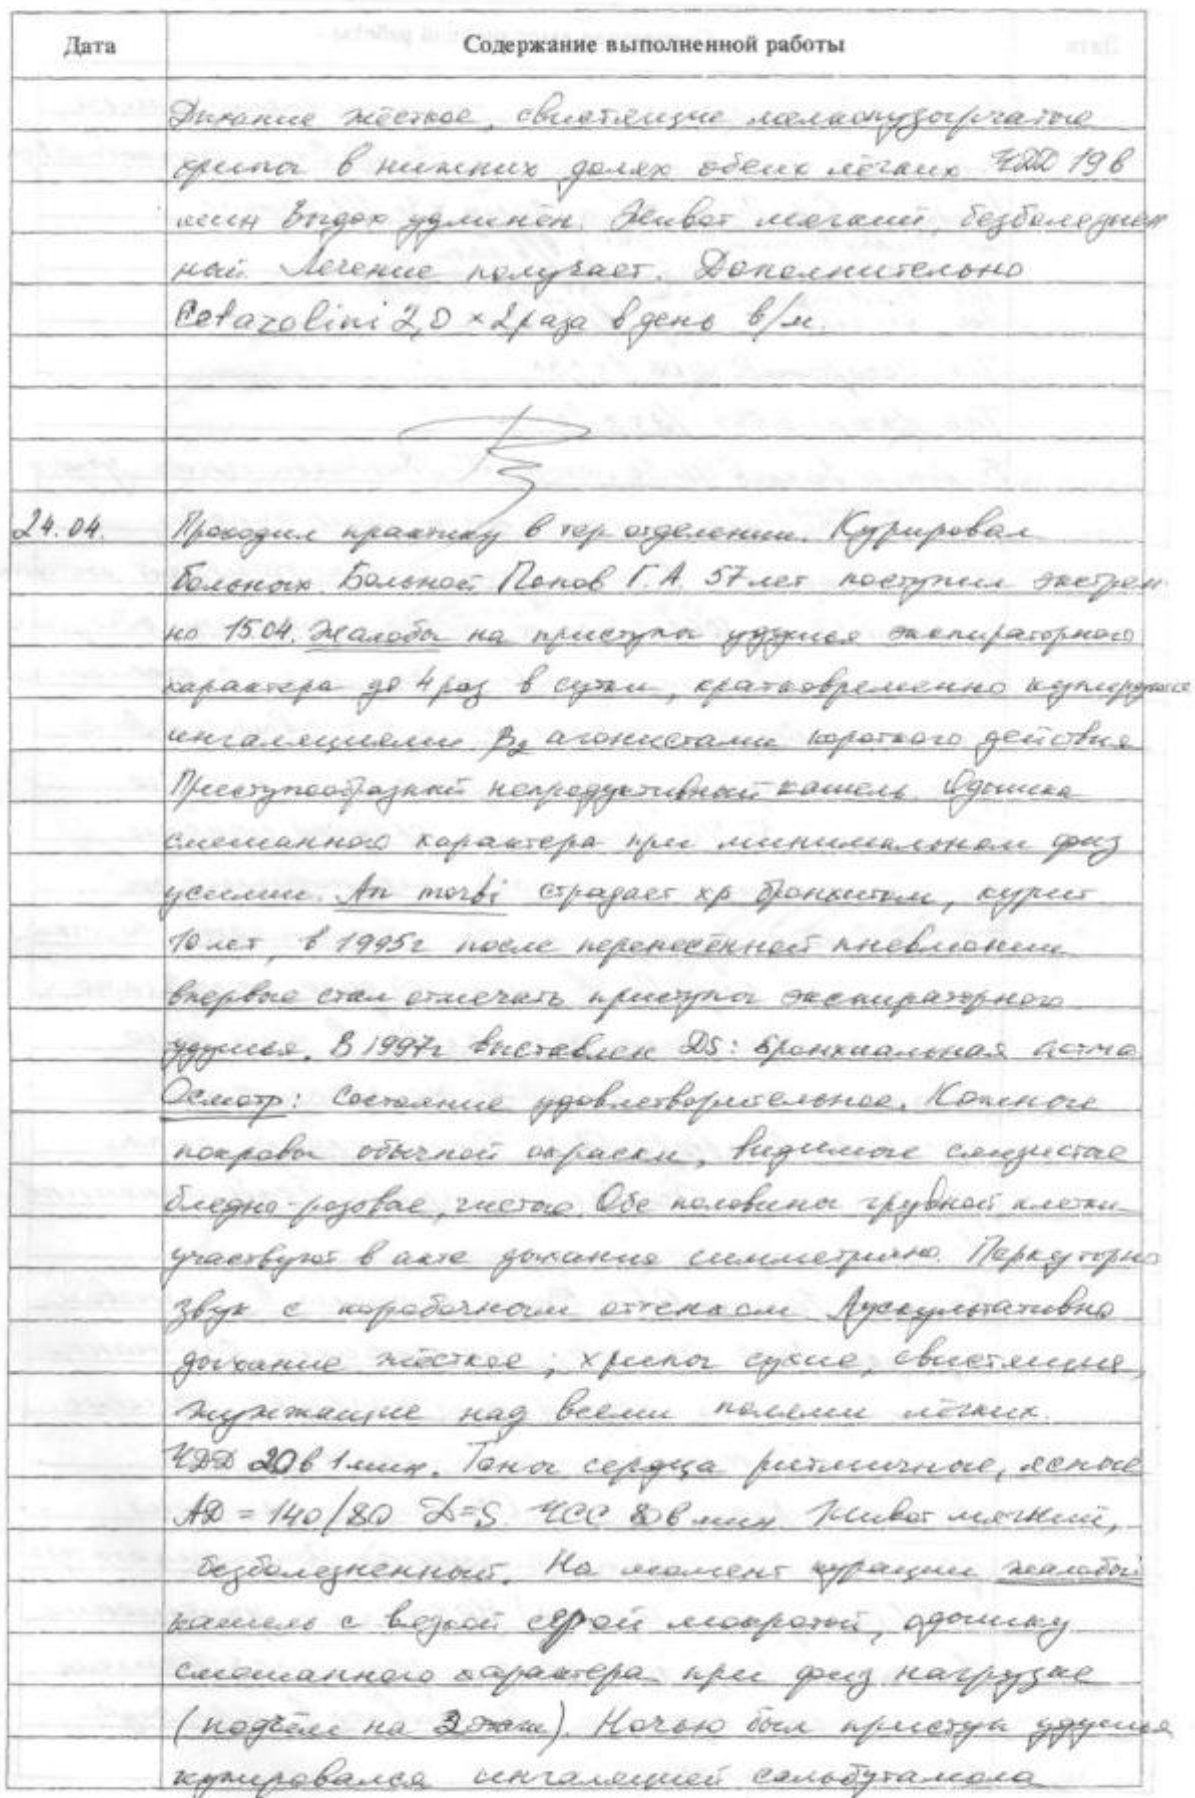 Дата Содержание выполненной работы
Дыхание жёсткое, свистящие мелкопузырчатые
хрипы в нижних долях обеих лёгких ЧДД 19 в
мин Выдох удлинён. Живот мягкий, безболезнен
ный. Лечение получает. Дополнительно
Cefazolini 2,0 × 2 раза в день в/м.
24.04. Проходил практику в тер отделении. Курировал
больных. Больной Попов Г.А. 57 лет поступил экстрен
но 15.04. Жалобы на приступы удушья экспираторного
характера до 4 раз в сутки, кратковременно
ингаляциями β2 агонистами короткого действия
Приступообразный непродуктивный кашель. Одышка
смешанного характера при минимальном физ
усилии. An morbi страдает хр бронхитом, курит
10 лет, в 1995г после перенесённой пневмонии
впервые стал отмечать приступы экспираторного
удушья. В 1997г выставлен DS: Бронхиальная астма
Осмотр: Состояние удовлетворительное. Кожные
покровы обычной окраски, видимые слизистые
бледно-розовые, чистые. Обе половины грудной клетки
участвуют в акте дыхания симметрично. Перкуторно
звук с коробочным оттенком Аускультативно
дыхание жёсткое, хрипы сухие, свистящие,
жужжащие над всеми полями лёгких.
ЧДД 20 в 1 мин. Тоны сердца ритмичные, ясные
АД = 140/80 D=S. ЧСС 80 в мин. Живот мягкий,
безболезненный. На момент курации жалобы
кашель с вязкой серой мокротой, одышку
смешанного характера при физ нагрузке
(подъём на 2 этаж). Ночью был приступ удушья
купировался ингаляцией сальбутамола